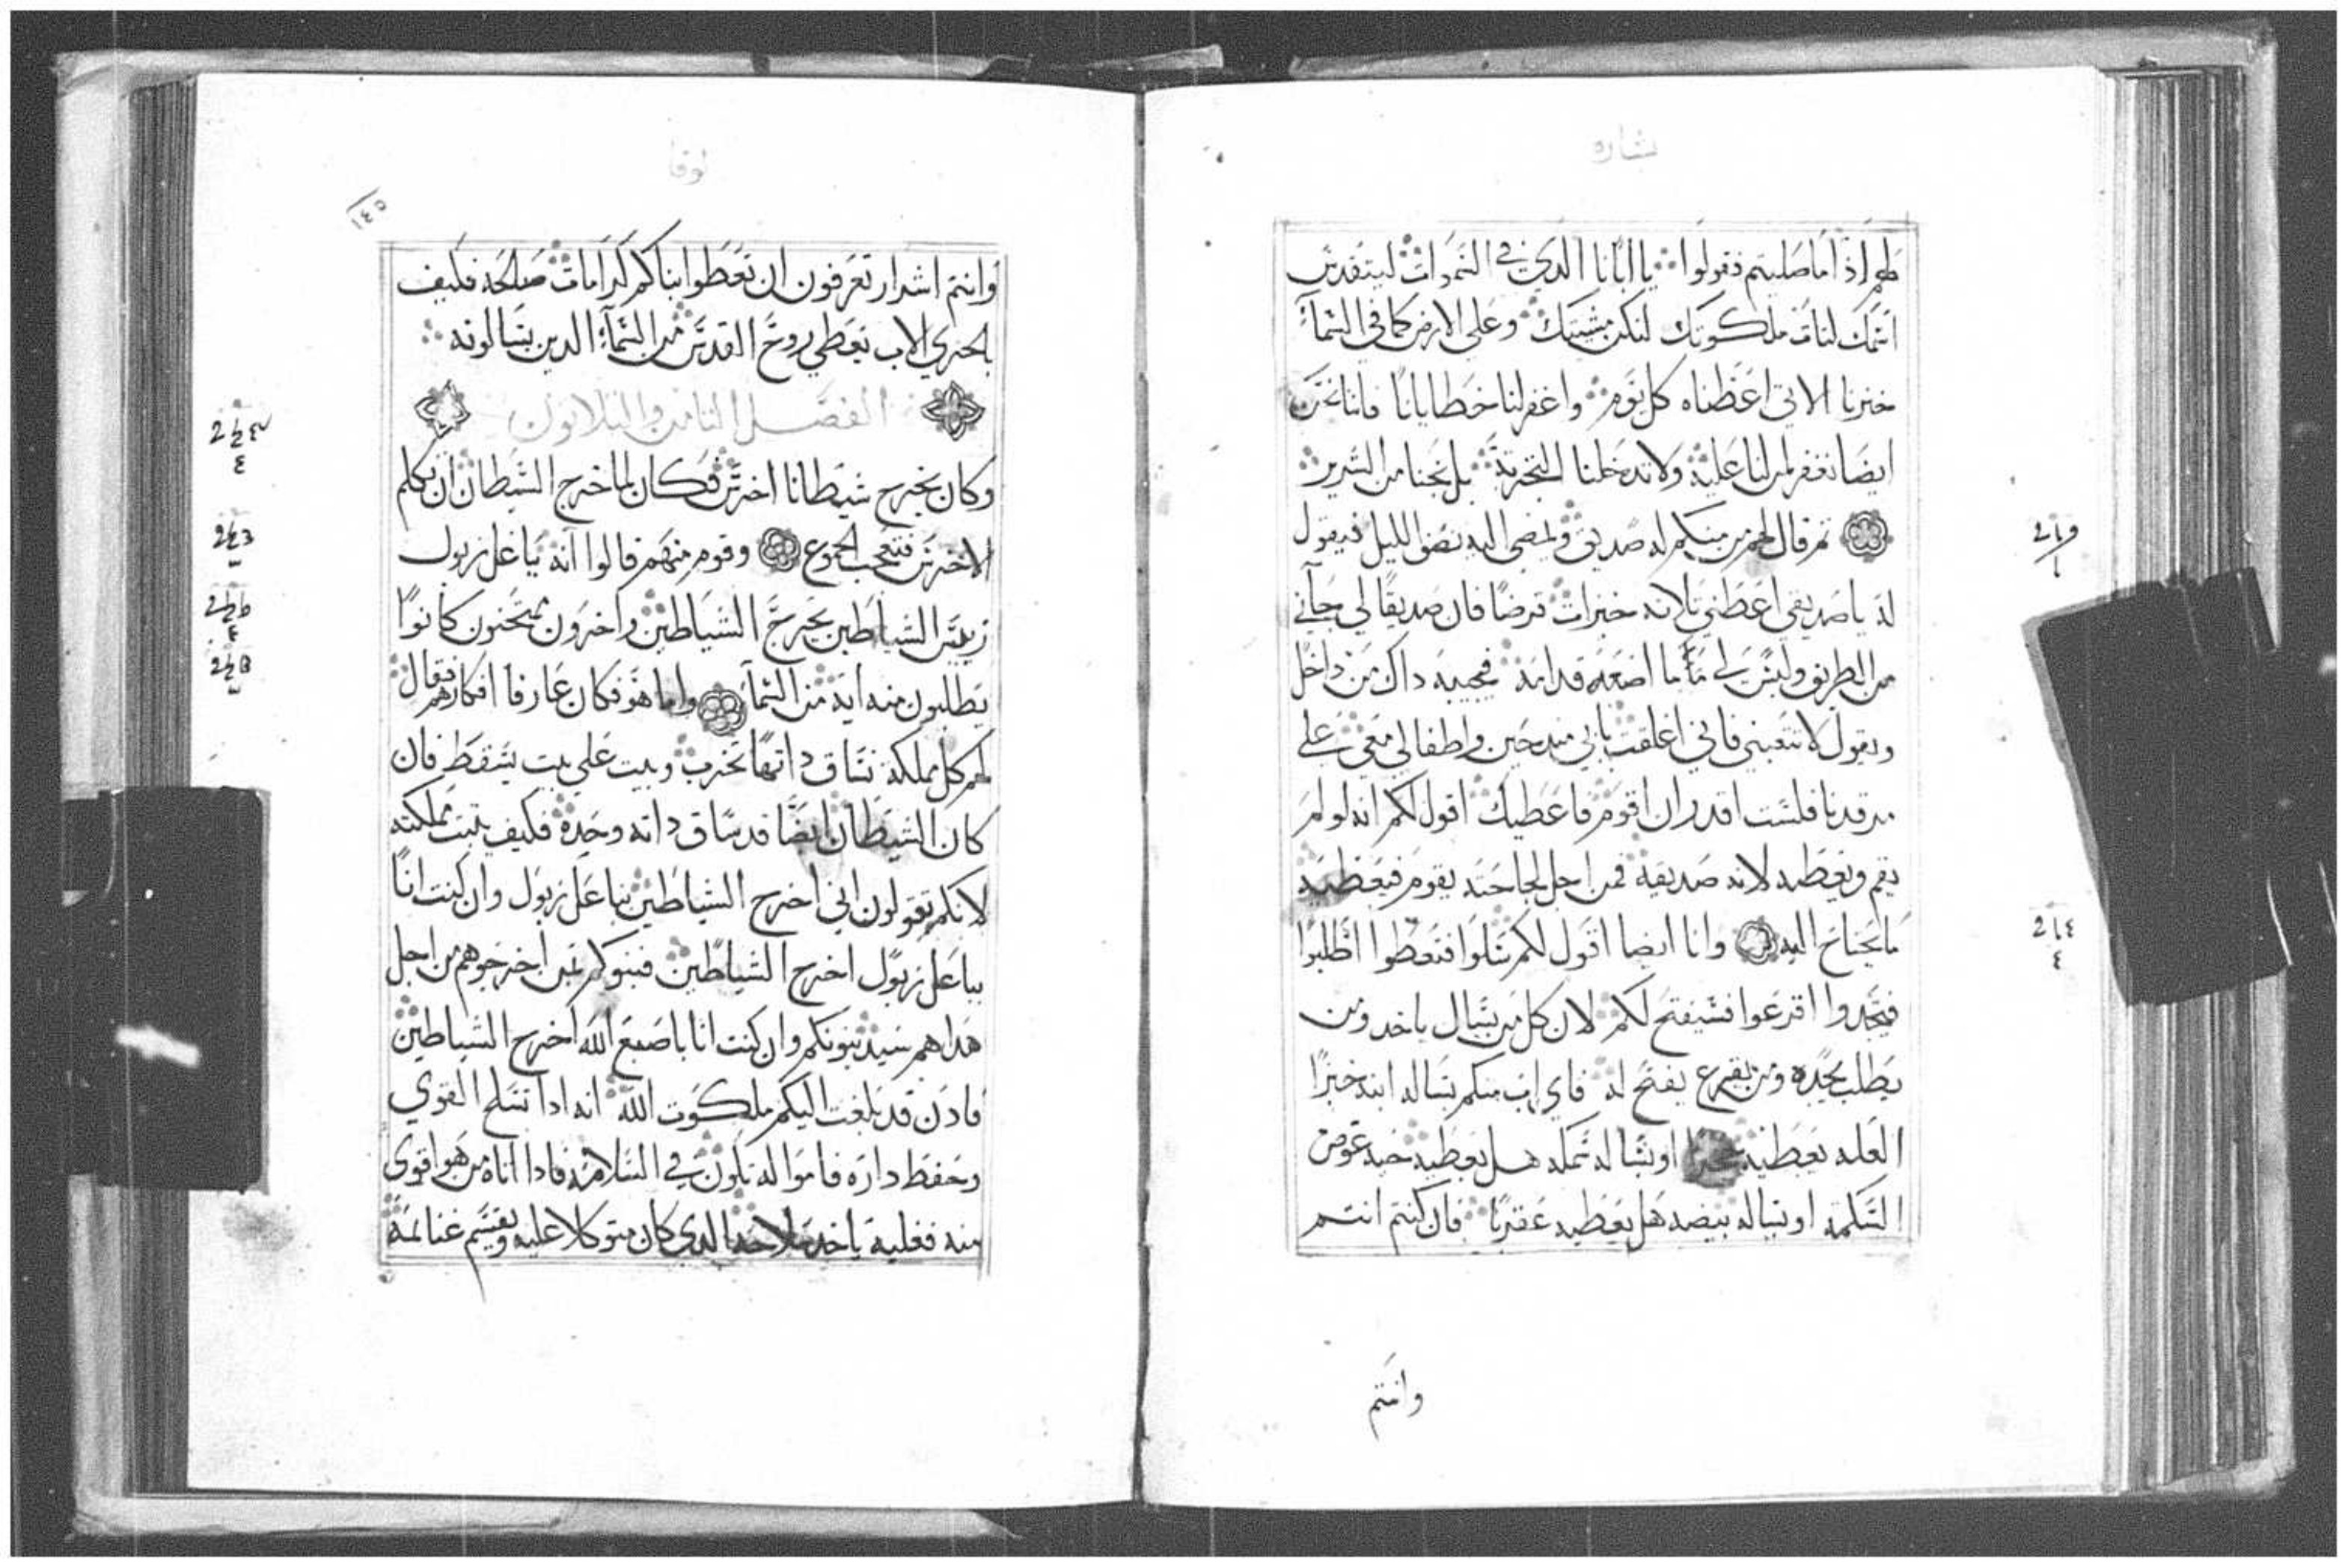 بشاره
لهم اذا ما صليتم فقولوا يا ابانا الدي في السموات ليتقدس
اسمك لتات ملكوتك لتكن مشيتك وعلى الارض كما في السمآء
خبزنا الاتي اعطناه كل يوم واغفر لنا خطايانا فاننا نحن
ايضا نغفر لمن لنا عليه ولا تدخلنا التجربة بل نجنا من الشرير
ثم قال لهم من منكم له صديق ويمضي اليه نصف الليل فيقول
له يا صديقي اعطني تلاته خبزات قرضًا فان صديقًا لي جآني
من الطريق وليس لي ما اضعه قدامه فيجيبه داك من داخل
ويقول لا تتعبني فاني اغلقت بابي مند حين واطفالي معي على
مرقدنا فلست اقدر ان اقوم فاعطيك اقول لكم انه لو لم
يقم ويعطيه لانه صديقه فمن اجل لجاجته يقوم فيعطيه
ما يحتاج اليه وانا ايضا اقول لكم سلوا فتعطوا اطلبوا
فتجدوا اقرعوا فسيفتح لكم لان كل من يسال ياخد ومن
يطلب يجده ومن يقرع يفتح له فاي اب منكم يساله ابنه خبزًا
العله يعطيه حجرًا او يساله سمكه هل يعطيه حيه عوض
السمكة او يساله بيضه هل يعطيه عقربًا فان كنتم انتم
وانتم
لوقا
١٤٥
وانتم اشرار تعرفون ان تعطوا ابناكم كرامات صالحه فكيف
بالحري الاب يعطي روح القدس من السمآء الدين يسالونه
الفصل الثامن والتلاتون
وكان يخرج شيطانا اخرس فكان لما خرج الشيطان ان تكلم
الاخرس فتعجب الجموع وقوم منهم قالوا انه بباعل زبول
رييس الشياطين يخرج الشياطين واخرون ممتحنون كانوا
يطلبون منه ايه من السمآء واما هو فكان عارفا افكارهم فقال
لهم كل مملكة تشاق داتها تخرب وبيت على بيت يسقط فان
كان الشيطان ايضًا قد شاق داته وحده فكيف تتبت مملكته
لانكم تقولون اني اخرج الشياطين بباعل زبول وان كنت انا
بباعل زبول اخرج الشياطين فبنوكم بمن اخرجوهم من اجل
هدا هم سيدينونكم وان كنت انا باصبع الله اخرج الشياطين
فادن قد بلغت اليكم ملكوت الله انه ادا تسلح القوي
وحفظ داره فامواله تكون في السلامة فادا اتاه من هو اقوى
منه فغلبه ياخد سلاحه الدي كان متوكلا عليه ويقسم غنائمه